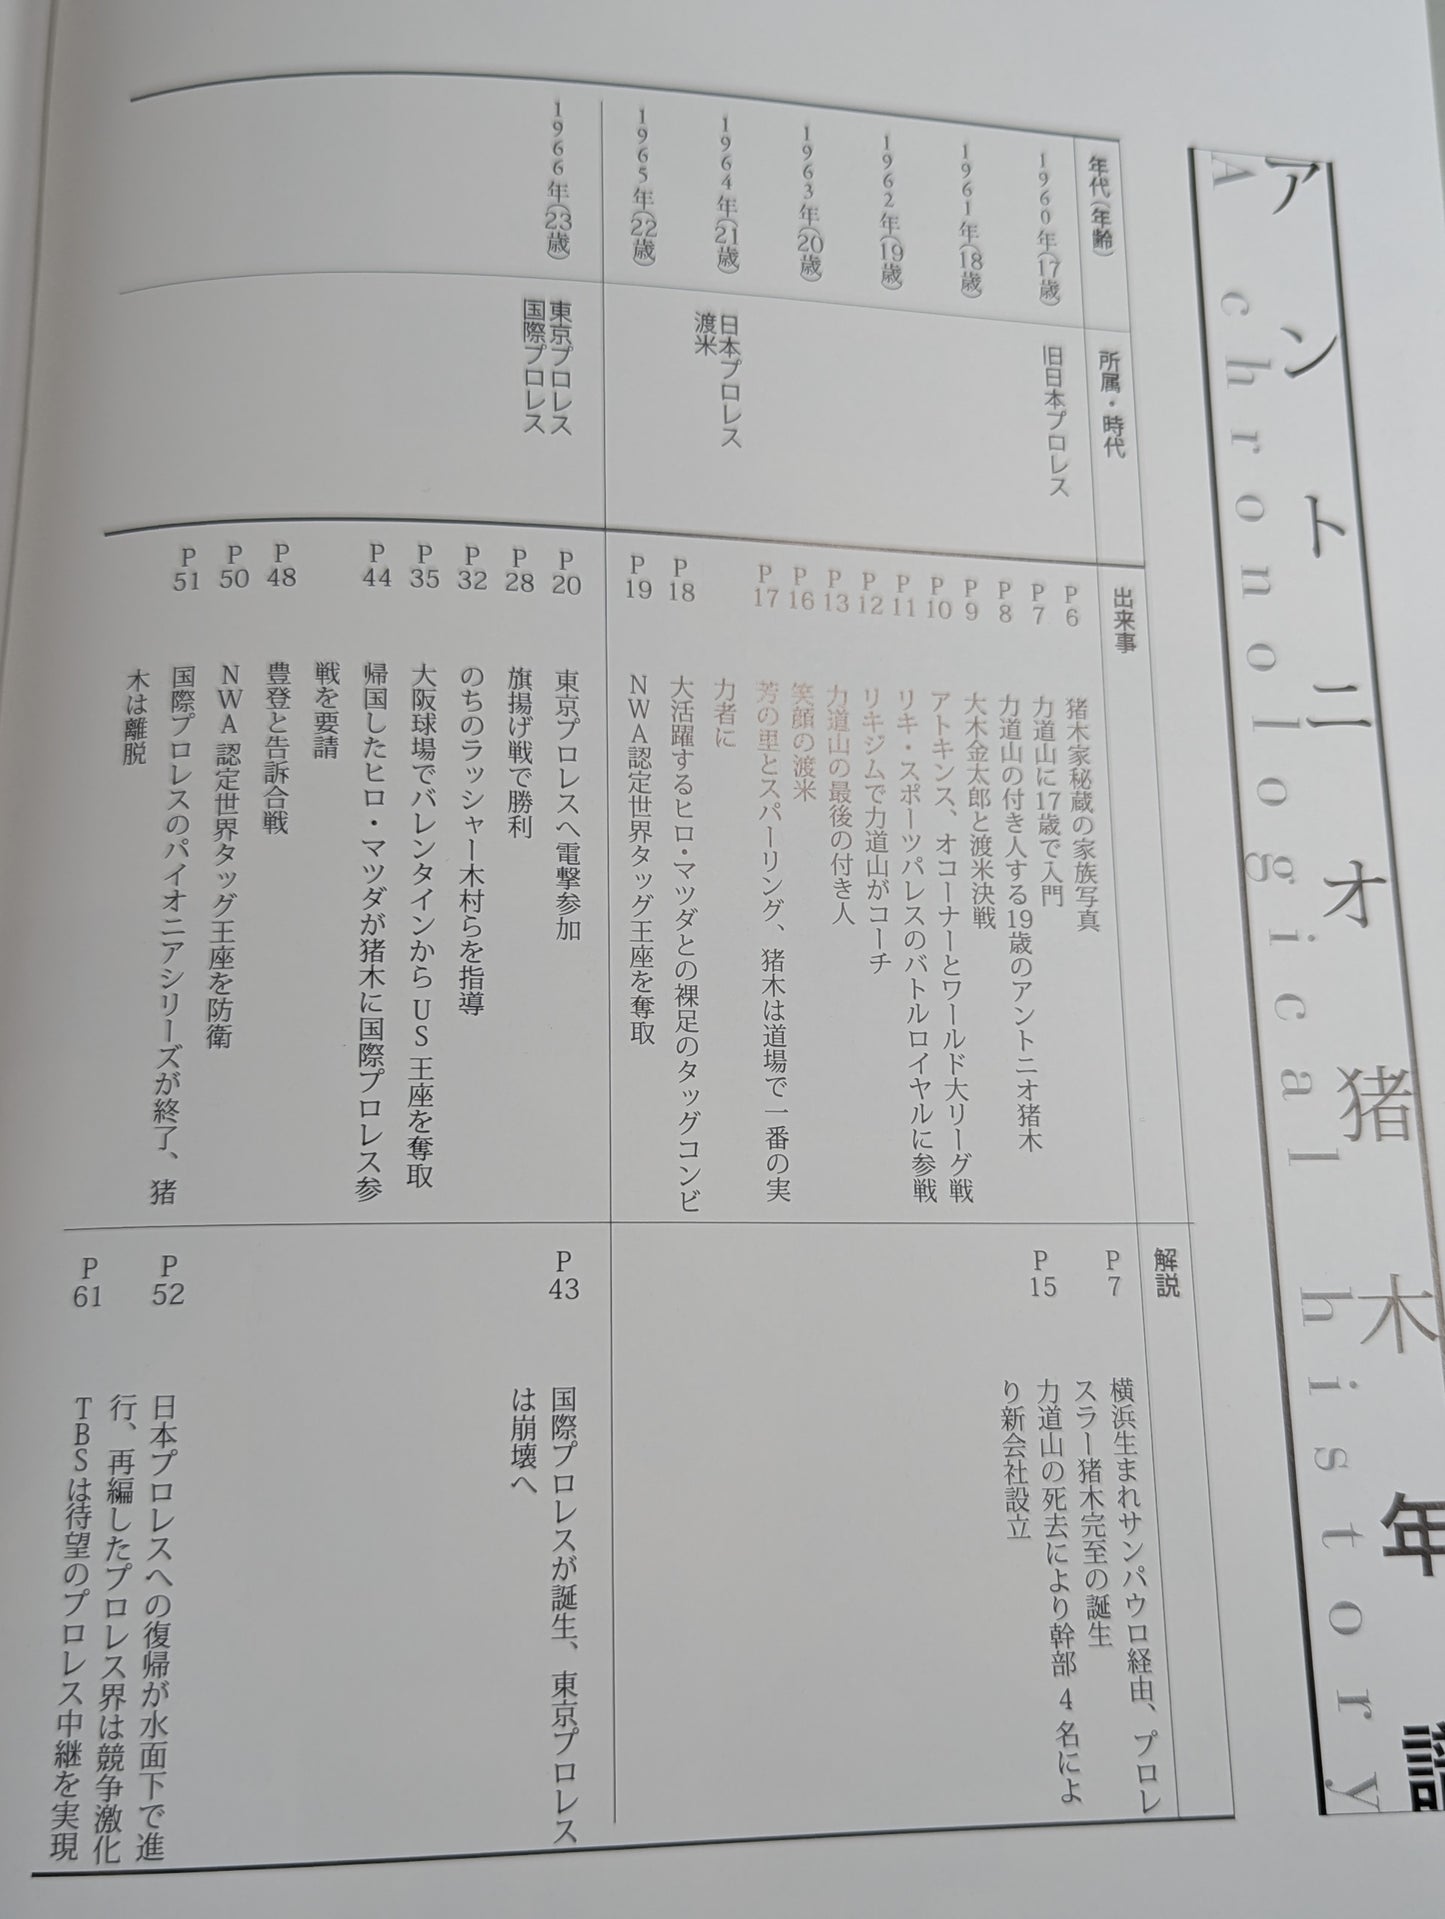 アントニオ猪木年譜
A chronological history
年代(年齢)
所属・時代
出来事
解説
1960年(17歳)
1961年(18歳)
1962年(19歳)
1963年(20歳)
1964年(21歳)
1965年(22歳)
旧日本プロレス
日本プロレス
渡米
P6 猪木家秘蔵の家族写真
P7 力道山に17歳で入門
P8 力道山の付き人する19歳のアントニオ猪木
P9 大木金太郎と渡米決戦
P10 アトキンス、オコーナーとワールド大リーグ戦
P11 リキ・スポーツパレスのバトルロイヤルに参戦
P12 リキジムで力道山がコーチ
P13 力道山の最後の付き人
P16 笑顔の渡米
P17 芳の里とスパーリング、猪木は道場で一番の実
力者に
P18 大活躍するヒロ・マツダとの裸足のタッグコンビ
P19 NWA認定世界タッグ王座を奪取
P7 横浜生まれサンパウロ経由、プロレ
スラー猪木完至の誕生
P15 力道山の死去により幹部4名によ
り新会社設立
1966年(23歳)
東京プロレス
国際プロレス
P20 東京プロレスへ電撃参加
P28 旗揚げ戦で勝利
P32 のちのラッシャー木村らを指導
P35 大阪球場でバレンタインからUS王座を奪取
P44 帰国したヒロ・マツダが猪木に国際プロレス参
戦を要請
P48 豊登と告訴合戦
P50 NWA認定世界タッグ王座を防衛
P51 国際プロレスのパイオニアシリーズが終了、猪
木は離脱
P43 国際プロレスが誕生、東京プロレス
は崩壊へ
P52 日本プロレスへの復帰が水面下で進
行、再編したプロレス界は競争激化
P61 TBSは待望のプロレス中継を実現